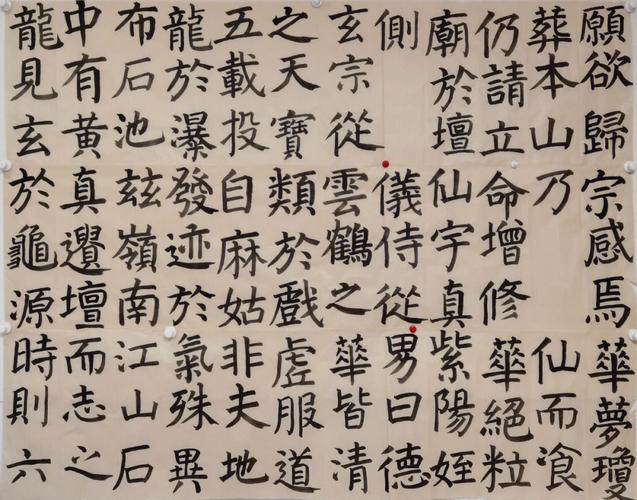 願欲歸
葬本山
仍請立
廟於壇
側
玄宗從
之天寶
五載投
龍於瀑
布石池
中有黃
龍見玄
宗感焉
乃
命增修
仙宇真
儀侍從
雲鶴之
類於戲
自麻姑
發迹於
茲嶺南
真遺壇
於龜源
華夢瓊
仙而飡
華絕粒
紫陽姪
男曰德
華皆清
虛服道
非夫地
氣殊異
江山石
而志之
時則六